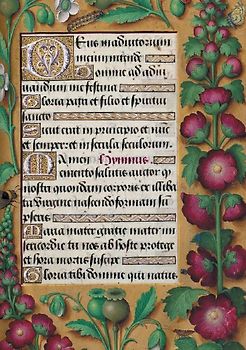 Deus in adiutorium
meum intende
Domine ad adiu
uandum me festina
Gloria patri et filio et spiritui
sancto
Sicut erat in principio et nunc
et semper et in secula seculorum.
Amen Hymnus.
Memento salutis auctor q
nostri quondam corporis ex illiba
ta virgine nascendo formam su
pseris
Maria mater gratie mater mi
sericordie tu nos ab hoste protege
et hora mortis suscipe
Gloria tibi domine qui natus